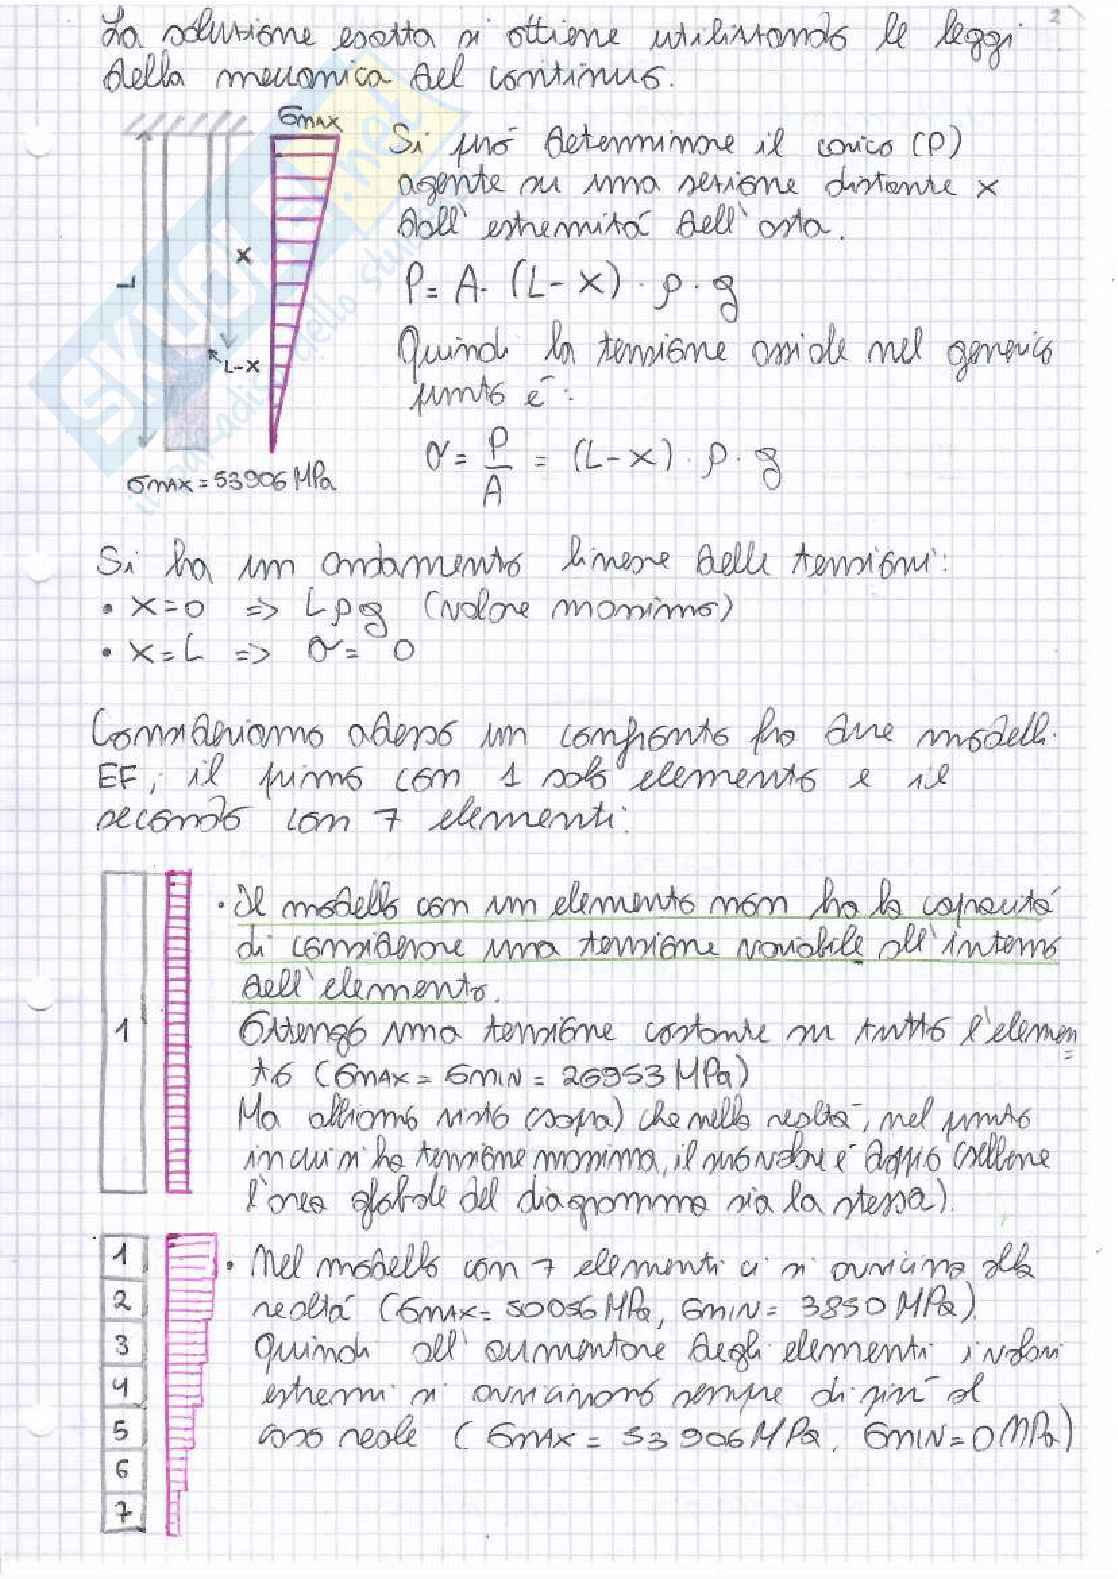 2
La soluzione esatta si ottiene utilizzando le leggi
della meccanica del continuo.
σMAX
Si può determinare il carico (P)
agente su una sezione distante x
dall'estremità dell'asta.
L
x
L-x
P = A · (L-x) · ρ · g
Quindi la tensione assiale nel generico
punto è:
σ = P/A = (L-x) · ρ · g
σMAX = 53906 MPa
Si ha un andamento lineare delle tensioni:
• x=0 => Lρg (valore massimo)
• x=L => σ= 0
Consideriamo adesso un confronto fra due modelli
EF, il primo con 1 solo elemento e il
secondo con 7 elementi:
1
• Il modello con un elemento non ha la capacità
di considerare una tensione variabile all'interno
dell'elemento.
Ottengo una tensione costante su tutto l'elemen
to (σMAX = σMIN = 26953 MPa)
Ma abbiamo visto (sopra) che nella realtà, nel punto
in cui si ha tensione massima, il suo valore è doppio (sebbene
l'area globale del diagramma sia la stessa).
1
2
3
4
5
6
7
• Nel modello con 7 elementi ci si avvicina alla
realtà (σMAX = 50056 MPa, σMIN = 3850 MPa).
Quindi all'aumentare degli elementi i valori
estremi si avvicinano sempre di più al
caso reale (σMAX = 53906 MPa, σMIN = 0 MPa)
SKUOLA.net